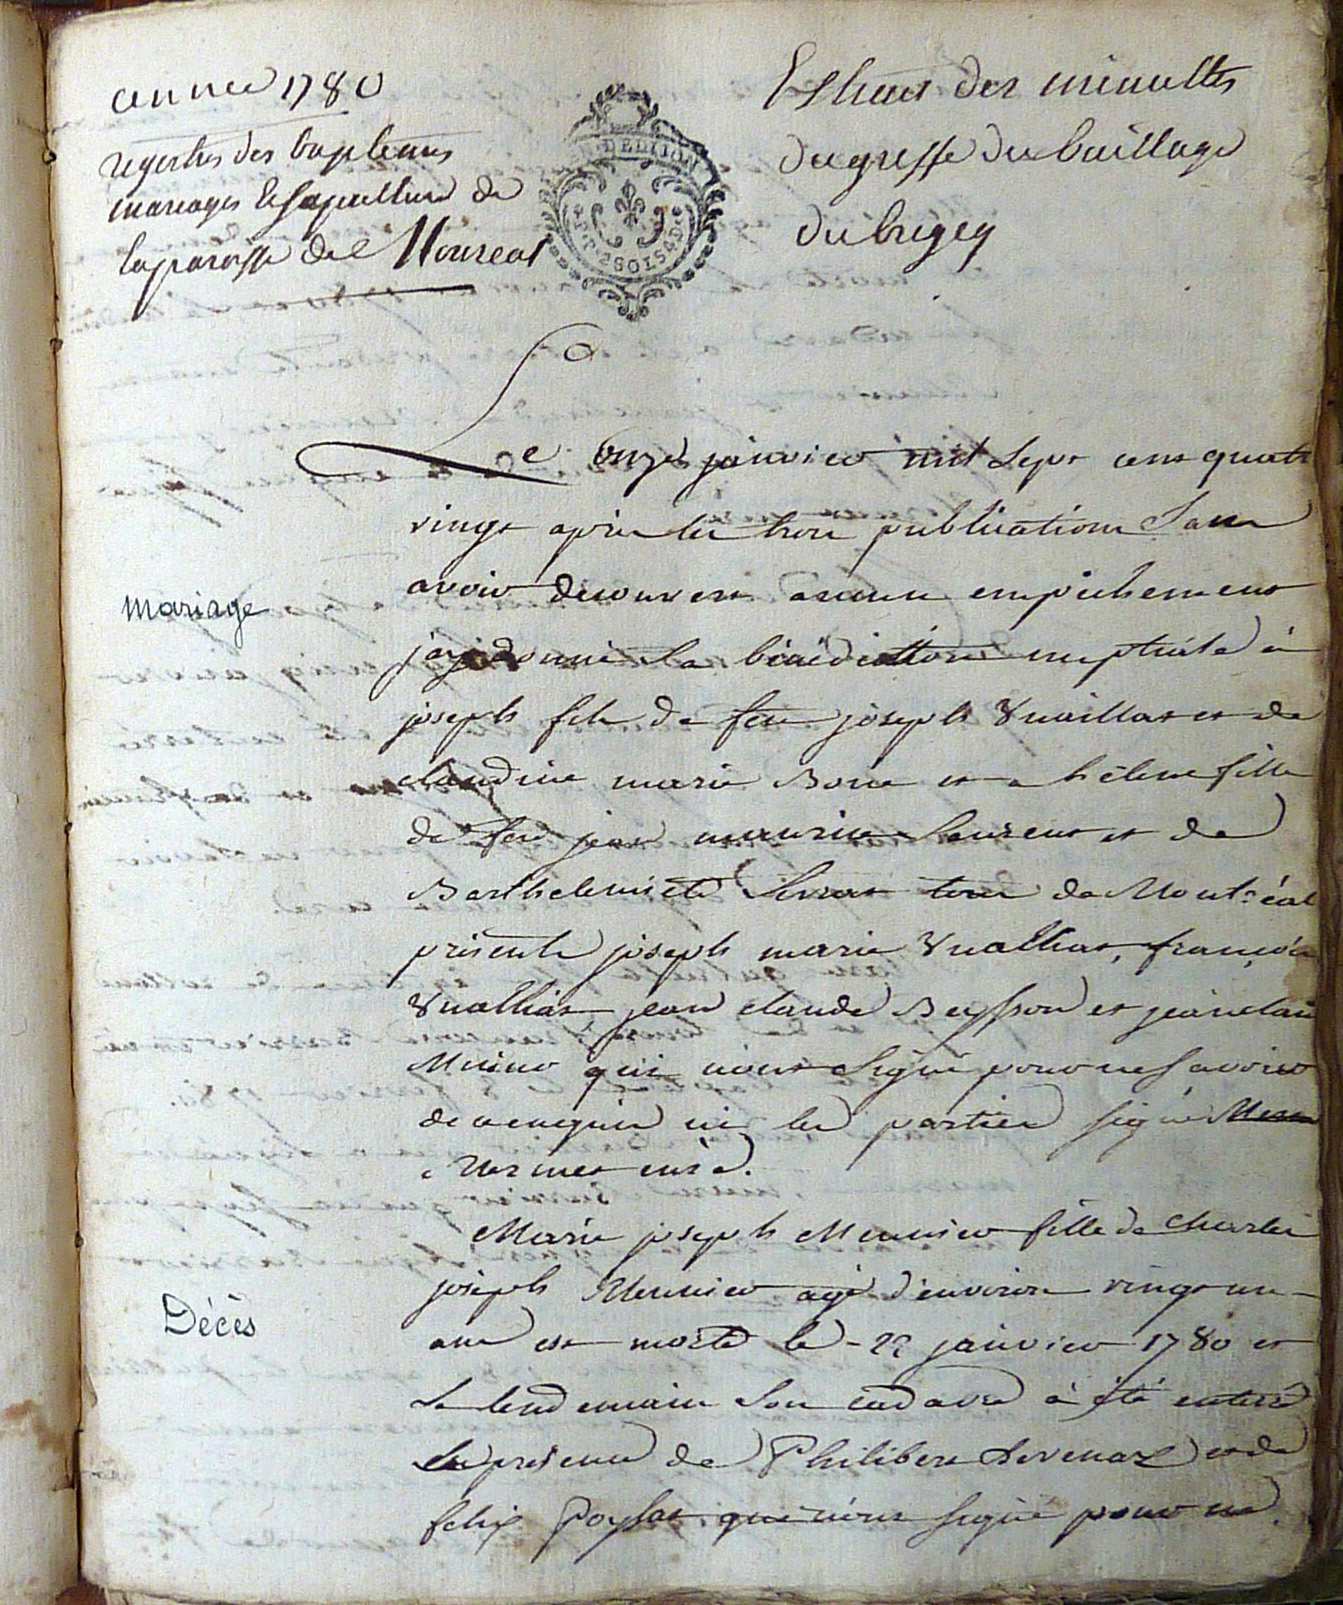 année 1780
registres des baptemes
mariages & sepulture de
la paroisse de Monreal
Extrait des minuttes
du greffe du baillage
du bugey
2 SOLS 4 D
Le onze janvier mil sept cent quatre
vingt après les trois publications sans
avoir decouvert aucun empechement
j'ay donné la bénédiction nuptiale à
joseph fils de feu joseph Vuaillat et de
claudine marie Bone et a hélene fille
de feu jean maurice Laurent et de
Barthelemiete tous de Montréal
présents joseph marie Vualliat, françois
Vualliat jean claude Beysson et jean clau
Munier qui n'ont signé pour ne savoir
de ce enquis ni les parties signé
Mermet curé.
Marie joseph Meunier fille de Charles
joseph Meunier agé d'environ vingt un
ans est morte le 22 janvier 1780 et
le lendemain son cadavre à été enterré
en presence de Philibert Sevenaz et de
felix Poysat qui n'ont signé pour ne
mariage
Décès